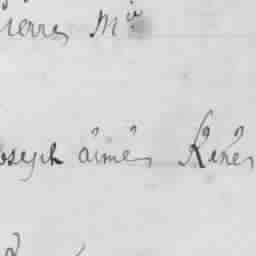 ierre Mie
oseph aimé René